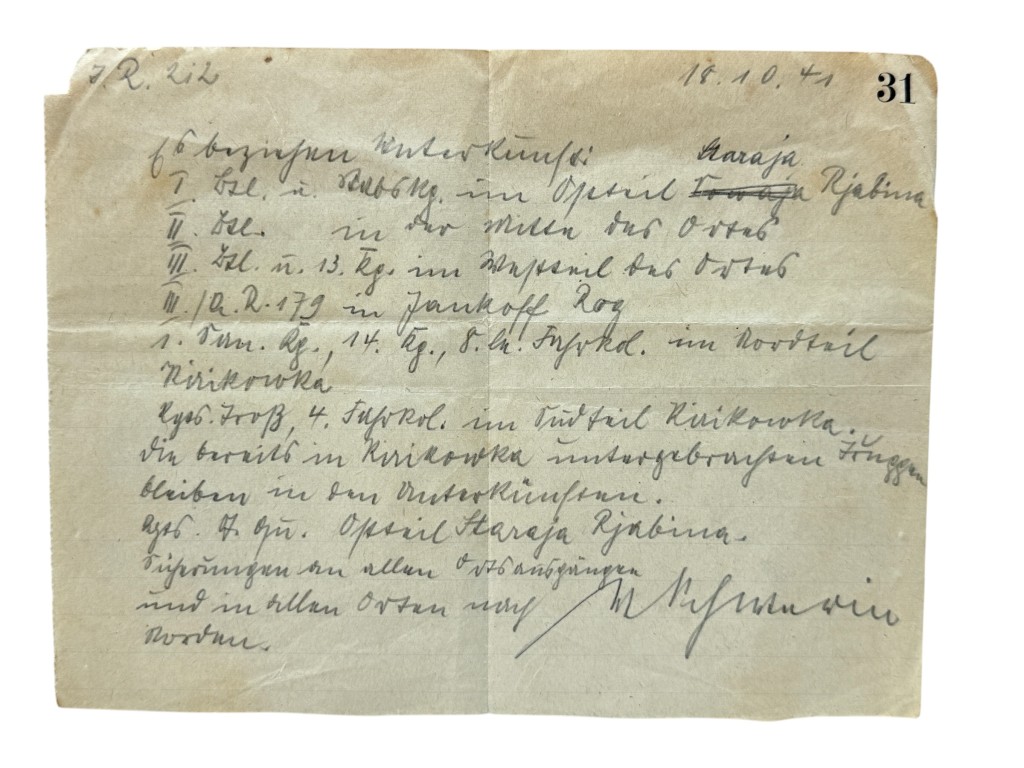 J.R. 212 18.10.41 31
Es beziehen Unterkunft: Staraja
I. Btl. u. Stabskp. im Ostteil Rjabina
II. Btl. in der Mitte des Ortes
III. Btl. u. 13. Kp. im Westteil des Ortes
III./A.R. 179 in Jankoff Rog
1. San. Kp., 14. Kp., 8. le. Fahrkol. im Nordteil
Kirikowka
Rgts. Troß, 4. Fahrkol. im Südteil Kirikowka.
Die bereits in Kirikowka untergebrachten Truppen
bleiben in den Unterkünften.
Rgts. St. Qu. Ostteil Staraja Rjabina.
Sicherungen an allen Ortsausgängen
und in allen Orten nach v Schwerin
Norden.